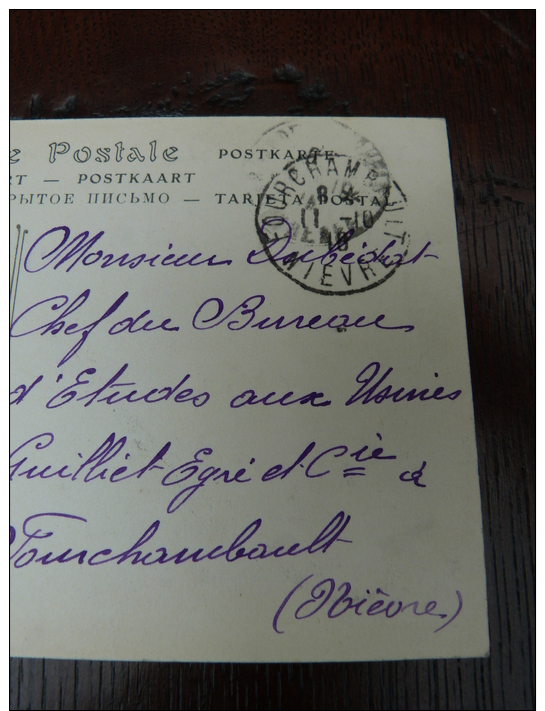 e Postale POSTKARTE
RT — POSTKAART
РЫТОЕ ПИСЬМО — TARJETA POSTAL
FOURCHAMBAULT
11 -10
NIEVRE
Monsieur Dubédat
Chef du Bureau
d'Etudes aux Usines
Guilliet Egré et Cie à
Fourchambault
(Nièvre)